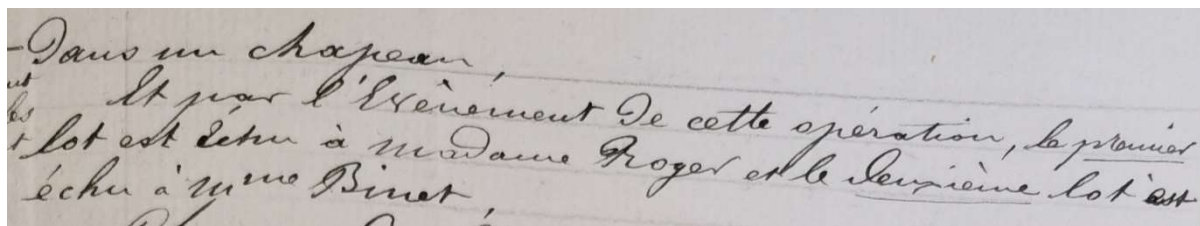 Dans un chapeau,
Et par l'Evènement de cette opération, le premier
lot est échu à madame Roger et le deuxième lot est
échu à Mme Binet,